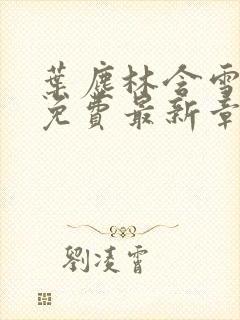 葉塵林含雪
免費最新章
劉凌霄